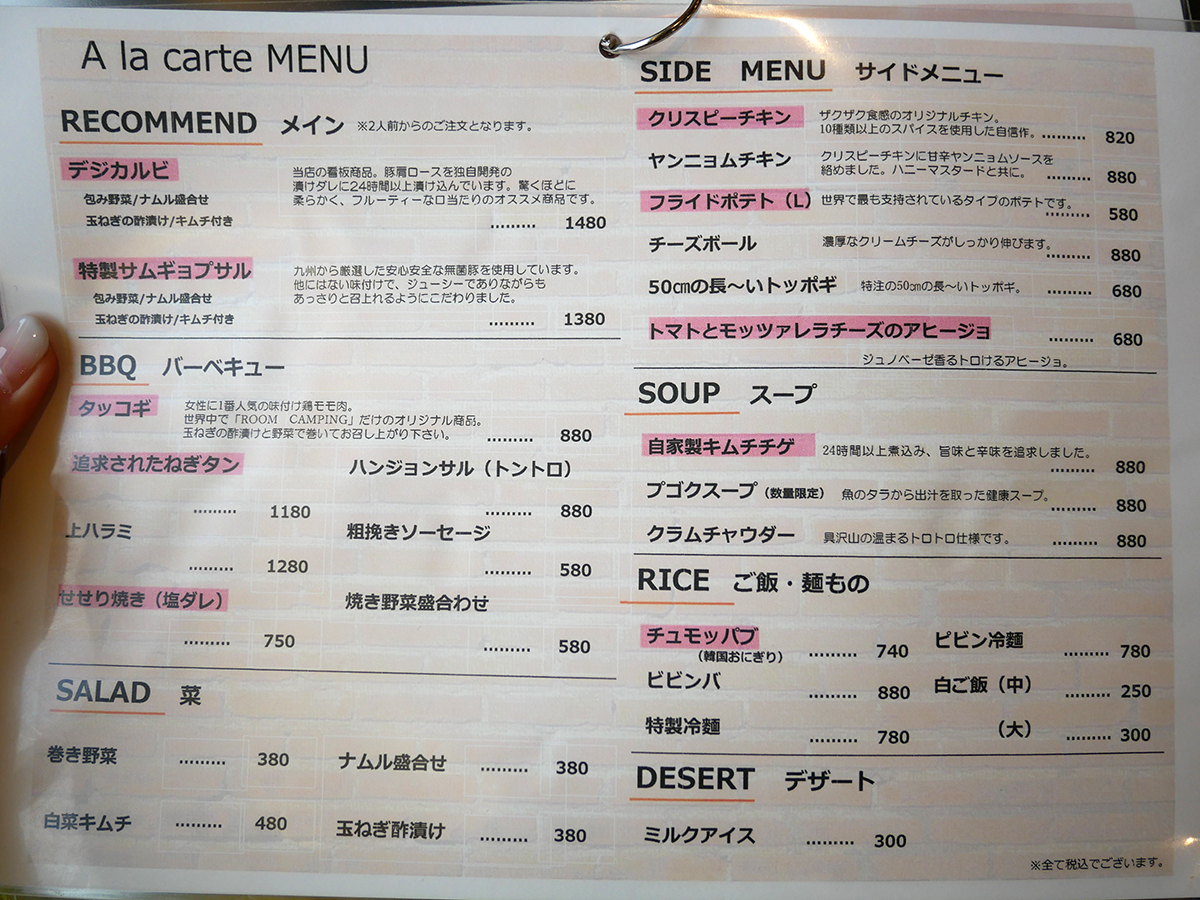 A la carte MENU
RECOMMEND メイン ※2人前からのご注文となります。
デジカルビ
包み野菜/ナムル盛合せ
玉ねぎの酢漬け/キムチ付き
当店の看板商品。豚肩ロースを独自開発の
漬けダレに24時間以上漬け込んでいます。驚くほどに
柔らかく、フルーティーな口当たりのオススメ商品です。
......... 1480
特製サムギョプサル
包み野菜/ナムル盛合せ
玉ねぎの酢漬け/キムチ付き
九州から厳選した安心安全な無菌豚を使用しています。
他にはない味付けで、ジューシーでありながらも
あっさりと召上れるようにこだわりました。
......... 1380
BBQ バーベキュー
タッコギ
女性に1番人気の味付け鶏モモ肉。
世界中で「ROOM CAMPING」だけのオリジナル商品。
玉ねぎの酢漬けと野菜で巻いてお召し上がり下さい。 ......... 880
追求されたねぎタン
......... 1180
ハンジョンサル（トントロ）
......... 880
上ハラミ
......... 1280
粗挽きソーセージ
......... 580
せせり焼き（塩ダレ）
......... 750
焼き野菜盛合わせ
......... 580
SALAD 菜
巻き野菜 ......... 380
ナムル盛合せ ......... 380
白菜キムチ ......... 480
玉ねぎ酢漬け ......... 380
SIDE MENU サイドメニュー
クリスピーチキン
ザクザク食感のオリジナルチキン。
10種類以上のスパイスを使用した自信作。......... 820
ヤンニョムチキン
クリスピーチキンに甘辛ヤンニョムソースを
絡めました。ハニーマスタードと共に。 ......... 880
フライドポテト（L） 世界で最も支持されているタイプのポテトです。
......... 580
チーズボール 濃厚なクリームチーズがしっかり伸びます。
......... 880
50㎝の長～いトッポギ 特注の50㎝の長～いトッポギ。 ......... 680
トマトとモッツァレラチーズのアヒージョ ......... 680
ジュノベーゼ香るトロけるアヒージョ。
SOUP スープ
自家製キムチチゲ 24時間以上煮込み、旨味と辛味を追求しました。
......... 880
プゴクスープ（数量限定） 魚のタラから出汁を取った健康スープ。
......... 880
クラムチャウダー 具沢山の温まるトロトロ仕様です。 ......... 880
RICE ご飯・麺もの
チュモッパブ
（韓国おにぎり） ......... 740
ピビン冷麺 ......... 780
ビビンバ ......... 880
白ご飯（中） ......... 250
特製冷麺 ......... 780
（大） ......... 300
DESERT デザート
ミルクアイス ......... 300
※全て税込でございます。